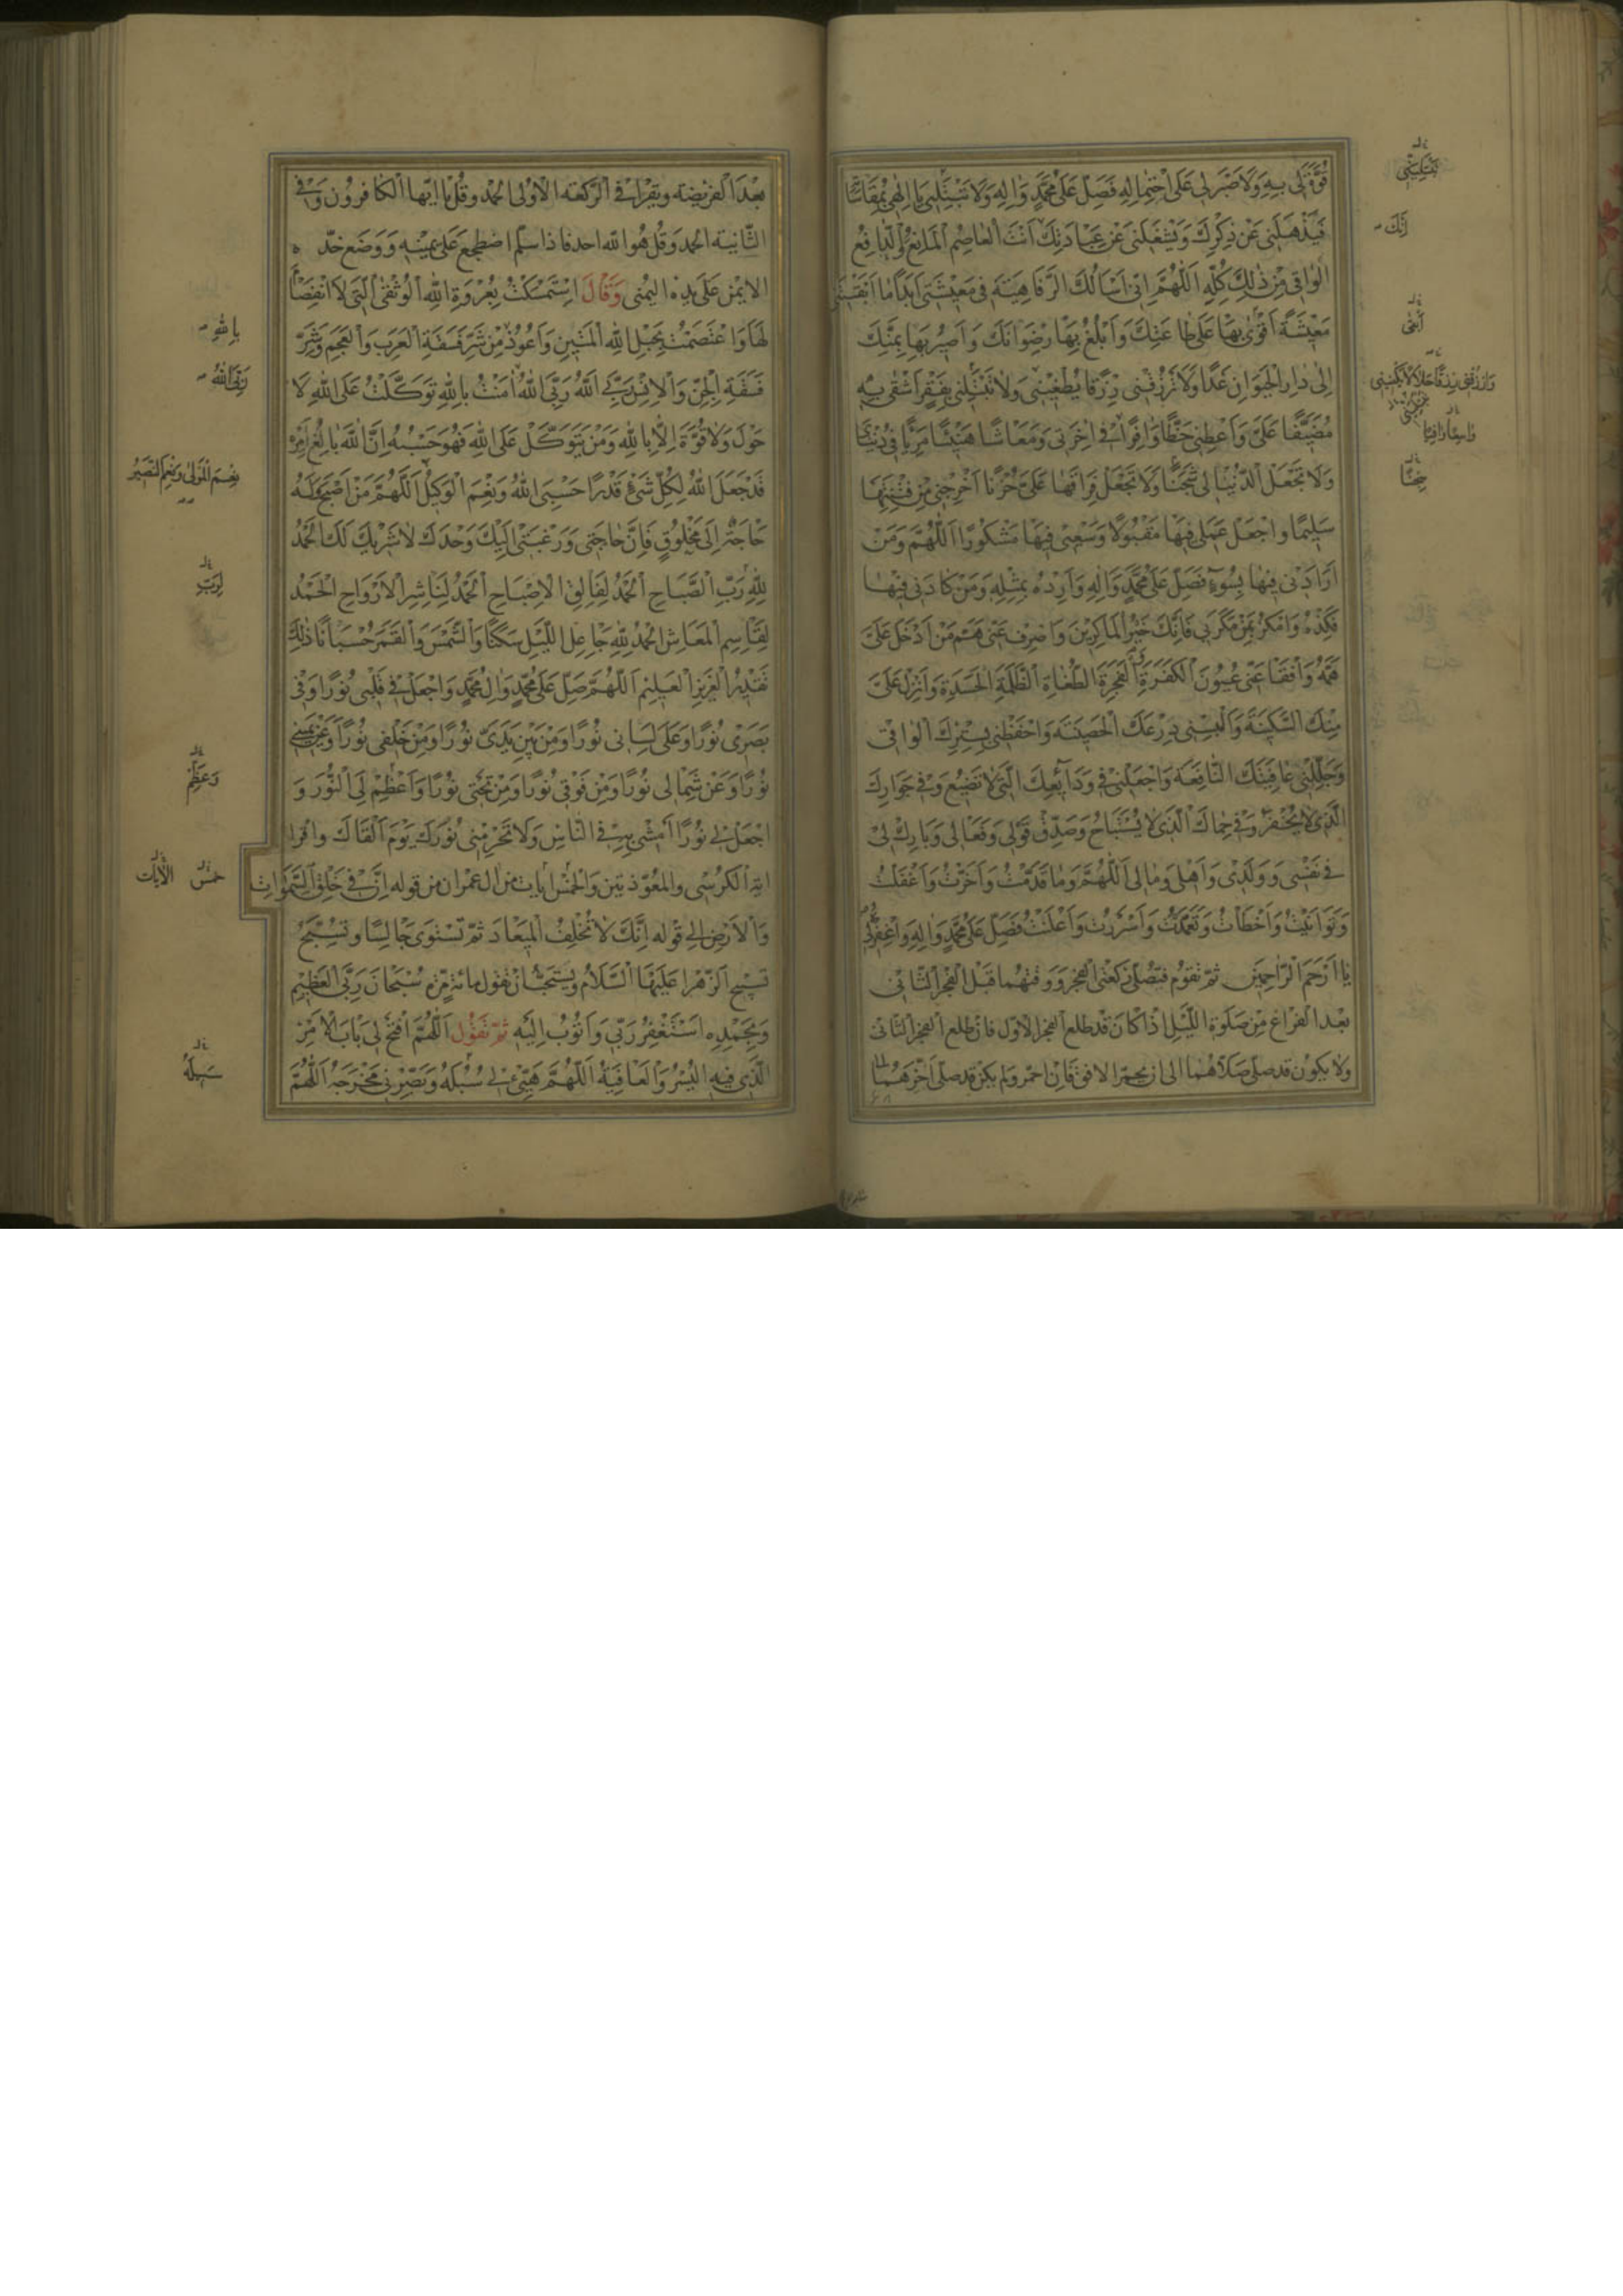 قُوَّةَ لِی بِهِ وَلَا صَبْرَ لِی عَلَی احْتِمَالِهِ فَصَلِّ عَلَی مُحَمَّدٍ وَاٰلِهِ وَلَا تَبْتَلِنِی یَا اِلٰهِی بِمُقَاسَاتِهِ
فَیُذْهِلَنِی عَنْ ذِکْرِكَ وَیَشْغَلَنِی عَنْ عِبَادَتِكَ اَنْتَ الْعَاصِمُ الْمَانِعُ وَالدَّافِعُ
الْوَاقِی مِنْ ذٰلِكَ کُلِّهِ اَللّٰهُمَّ اِنِّی اَسْاَلُكَ الرَّفَاهِیَةَ فِی مَعِیشَتِی اَبَدًا مَا اَبْقَیْتَنِی
مَعِیشَةً اَقْوٰی بِهَا عَلٰی طَاعَتِكَ وَاَبْلُغُ بِهَا رِضْوَانَكَ وَاَصِیرُ بِهَا بِمَنِّكَ
اِلٰی دَارِ الْحَیَوَانِ غَدًا وَلَا تَرْزُقْنِی رِزْقًا یُطْغِینِی وَلَا تَبْتَلِنِی بِفَقْرٍ اَشْقٰی بِهِ
مُضَیَّقًا عَلَیَّ وَاَعْطِنِی حَظًّا وَافِرًا فِی اٰخِرَتِی وَمَعَاشًا هَنِیئًا مَرِیًّا فِی دُنْیَایَ
وَلَا تَجْعَلِ الدُّنْیَا لِی شَجَنًا وَلَا تَجْعَلْ فِرَاقَهَا عَلَیَّ حُزْنًا اَخْرِجْنِی مِنْ فِتْنَتِهَا
سَلِیمًا وَاجْعَلْ عَمَلِی فِیهَا مَقْبُولًا وَسَعْیِی فِیهَا مَشْکُورًا اَللّٰهُمَّ وَمَنْ
اَرَادَنِی فِیهَا بِسُوءٍ فَصَلِّ عَلَی مُحَمَّدٍ وَاٰلِهِ وَاَرِدْهُ بِمِثْلِهِ وَمَنْ کَادَنِی فِیهَا
فَکِدْهُ وَامْکُرْ بِمَنْ مَکَرَ بِی فَاِنَّكَ خَیْرُ الْمَاکِرِینَ وَاصْرِفْ عَنِّی هَمَّ مَنْ اَدْخَلَ عَلَیَّ
هَمَّهُ وَافْقَأْ عَنِّی عُیُونَ الْکَفَرَةِ الْفَجَرَةِ الطُّغَاةِ الظَّلَمَةِ الْحَسَدَةِ وَاَنْزِلْ عَلَیَّ
مِنْكَ السَّکِینَةَ وَاَلْبِسْنِی دِرْعَكَ الْحَصِینَةَ وَاحْفَظْنِی بِسِتْرِكَ الْوَاقِی
وَجَلِّلْنِی عَافِیَتَكَ النَّافِعَةَ وَاجْعَلْنِی فِی وَدَائِعِكَ الَّتِی لَا تَضِیعُ وَفِی جِوَارِكَ
الَّذِی لَا یُخْفَرُ وَفِی حِمَاكَ الَّذِی لَا یُسْتَبَاحُ وَصَدِّقْ قَوْلِی وَفَعَالِی وَبَارِكْ لِی
فِی نَفْسِی وَوَلَدِی وَاَهْلِی وَمَالِی اَللّٰهُمَّ وَمَا قَدَّمْتُ وَاَخَّرْتُ وَاَغْفَلْتُ
وَتَوَانَیْتُ وَاَخْطَأْتُ وَتَعَمَّدْتُ وَاَسْرَرْتُ وَاَعْلَنْتُ فَصَلِّ عَلَی مُحَمَّدٍ وَاٰلِهِ وَاغْفِرْ لِی
یَا اَرْحَمَ الرَّاحِمِینَ ثم تقوم فتصلی رکعتی الفجر ووقتهما قبل الفجر الثانی
بعد الفراغ من صلوة اللیل اذا کان قد طلع الفجر الاول فان طلع الفجر الثانی
ولا یکون قد صلی صلاهما الی ان یحمر الافق فان احمر ولم یکن قد صلی اخرهما الی
تَبْتَلِیَنِّی
اِنَّكَ
خ
بعد الفریضة ویقرا فی الرکعة الاولی الحمد وقل یا ایها الکافرون وفی
الثانیة الحمد وقل هو الله احد فاذا سلم اضطجع علی یمینه ووضع خده
الایمن علی یده الیمنی وَقَالَ اِسْتَمْسَکْتُ بِعُرْوَةِ اللّٰهِ الْوُثْقَی الَّتِی لَا انْفِصَامَ
لَهَا وَاعْتَصَمْتُ بِحَبْلِ اللّٰهِ الْمَتِینِ وَاَعُوذُ مِنْ شَرِّ فَسَقَةِ الْعَرَبِ وَالْعَجَمِ وَشَرِّ
فَسَقَةِ الْجِنِّ وَالْاِنْسِ رَبِّیَ اَللّٰهُ رَبِّیَ اللّٰهُ اٰمَنْتُ بِاللّٰهِ تَوَکَّلْتُ عَلَی اللّٰهِ لَا
حَوْلَ وَلَا قُوَّةَ اِلَّا بِاللّٰهِ وَمَنْ یَتَوَکَّلْ عَلَی اللّٰهِ فَهُوَ حَسْبُهُ اِنَّ اللّٰهَ بَالِغُ اَمْرِهِ
قَدْ جَعَلَ اللّٰهُ لِکُلِّ شَیْءٍ قَدْرًا حَسْبِیَ اللّٰهُ وَنِعْمَ الْوَکِیلُ اَللّٰهُمَّ مَنْ اَصْبَحَ وَلَهُ
حَاجَةٌ اِلَی مَخْلُوقٍ فَاِنَّ حَاجَتِی وَرَغْبَتِی اِلَیْكَ وَحْدَكَ لَا شَرِیكَ لَكَ اَلْحَمْدُ
لِلّٰهِ رَبِّ الصَّبَاحِ اَلْحَمْدُ لِفَالِقِ الْاِصْبَاحِ اَلْحَمْدُ لِنَاشِرِ الْاَرْوَاحِ اَلْحَمْدُ
لِقَاسِمِ الْمَعَاشِ اَلْحَمْدُ لِلّٰهِ جَاعِلِ اللَّیْلِ سَکَنًا وَالشَّمْسَ وَالْقَمَرَ حُسْبَانًا ذٰلِكَ
تَقْدِیرُ الْعَزِیزِ الْعَلِیمِ اَللّٰهُمَّ صَلِّ عَلَی مُحَمَّدٍ وَاٰلِ مُحَمَّدٍ وَاجْعَلْ فِی قَلْبِی نُورًا وَفِی
بَصَرِی نُورًا وَعَلَی لِسَانِی نُورًا وَمِنْ بَیْنِ یَدَیَّ نُورًا وَمِنْ خَلْفِی نُورًا وَعَنْ یَمِینِی
نُورًا وَعَنْ شِمَالِی نُورًا وَمِنْ فَوْقِی نُورًا وَمِنْ تَحْتِی نُورًا وَاَعْظِمْ لِیَ النُّورَ وَ
اجْعَلْ لِی نُورًا اَمْشِی بِهِ فِی النَّاسِ وَلَا تَحْرِمْنِی نُورَكَ یَوْمَ اَلْقَاكَ واقرا
ایة الکرسی والمعوذتین والخمس ایات من ال عمران من قوله اِنَّ فِی خَلْقِ السَّمٰوَاتِ
وَالْاَرْضِ الی قوله اِنَّكَ لَا تُخْلِفُ الْمِیعَادَ ثم تستوی جالسا وتسبح
تسبیح الزهرا علیها السلام ویستحب ان تقول مائة مرة سُبْحَانَ رَبِّیَ الْعَظِیمِ
وَبِحَمْدِهِ اَسْتَغْفِرُ رَبِّی وَاَتُوبُ اِلَیْهِ ثم تقول اَللّٰهُمَّ افْتَحْ لِی بَابَ الْاَمْرِ
الَّذِی فِیهِ الْیُسْرُ وَالْعَافِیَةُ اَللّٰهُمَّ هَیِّئْ لِی سُبُلَهُ وَبَصِّرْنِی مَخْرَجَهُ اَللّٰهُمَّ
بِاللّٰهِ
رَبِّیَ اللّٰهُ
نِعْمَ الْمَوْلَی وَنِعْمَ النَّصِیرُ
لِرَبِّ
وَعَظِّمْ
خمس الآیات
سَبِیلَهُ